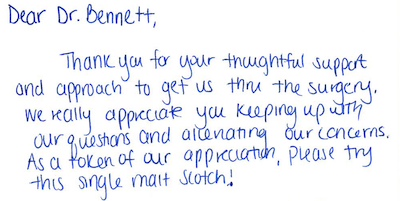 Dear Dr. Bennett,
Thank you for your thoughtful support
and approach to get us thru the surgery.
We really appreciate you keeping up with
our questions and allevating our concerns.
As a token of our appreciation, please try
this single malt scotch!